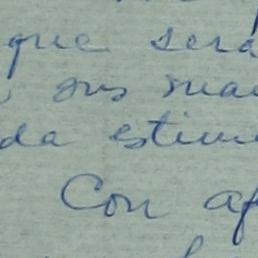 que será
sus ma
da estim
Con af